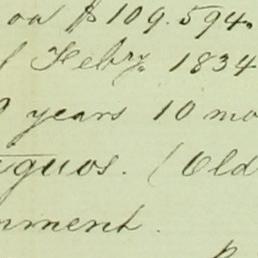 on $109.594.
Feby. 1834
years 10 mo
iguos. (Old
nment.